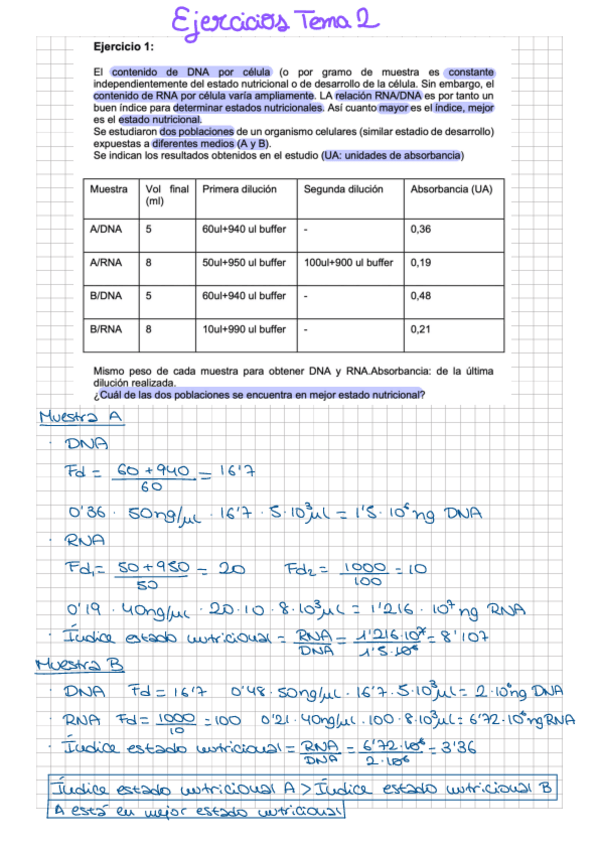 Ejercicios Tema 2
Ejercicio 1:
El contenido de DNA por célula (o por gramo de muestra es constante
independientemente del estado nutricional o de desarrollo de la célula. Sin embargo, el
contenido de RNA por célula varía ampliamente. LA relación RNA/DNA es por tanto un
buen índice para determinar estados nutricionales. Así cuanto mayor es el índice, mejor
es el estado nutricional.
Se estudiaron dos poblaciones de un organismo celulares (similar estadio de desarrollo)
expuestas a diferentes medios (A y B).
Se indican los resultados obtenidos en el estudio (UA: unidades de absorbancia)
Muestra Vol final (ml) Primera dilución Segunda dilución Absorbancia (UA)
A/DNA 5 60ul+940 ul buffer - 0,36
A/RNA 8 50ul+950 ul buffer 100ul+900 ul buffer 0,19
B/DNA 5 60ul+940 ul buffer - 0,48
B/RNA 8 10ul+990 ul buffer - 0,21
Mismo peso de cada muestra para obtener DNA y RNA.Absorbancia: de la última
dilución realizada.
¿Cuál de las dos poblaciones se encuentra en mejor estado nutricional?
Muestra A
· DNA
Fd = 60+940/60 = 16'7
0'36 · 50ng/µL · 16'7 · 5·10³µL = 1'5·10⁶ng DNA
· RNA
Fd₁= 50+950/50 = 20 Fd₂ = 1000/100 = 10
0'19 · 40ng/µL · 20·10·8·10³µL = 1'216 · 10⁷ng RNA
· Índice estado nutricional = RNA/DNA = 1'216·10⁷/1'5·10⁶ = 8'107
Muestra B
· DNA Fd = 16'7 0'48·50ng/µL·16'7·5·10³µL = 2·10⁶ng DNA
· RNA Fd = 1000/10 = 100 0'21·40ng/µL·100·8·10³µL = 6'72·10⁶ngRNA
· Índice estado nutricional = RNA/DNA = 6'72·10⁶/2·10⁶ = 3'36
Índice estado nutricional A > Índice estado nutricional B
A está en mejor estado nutricional